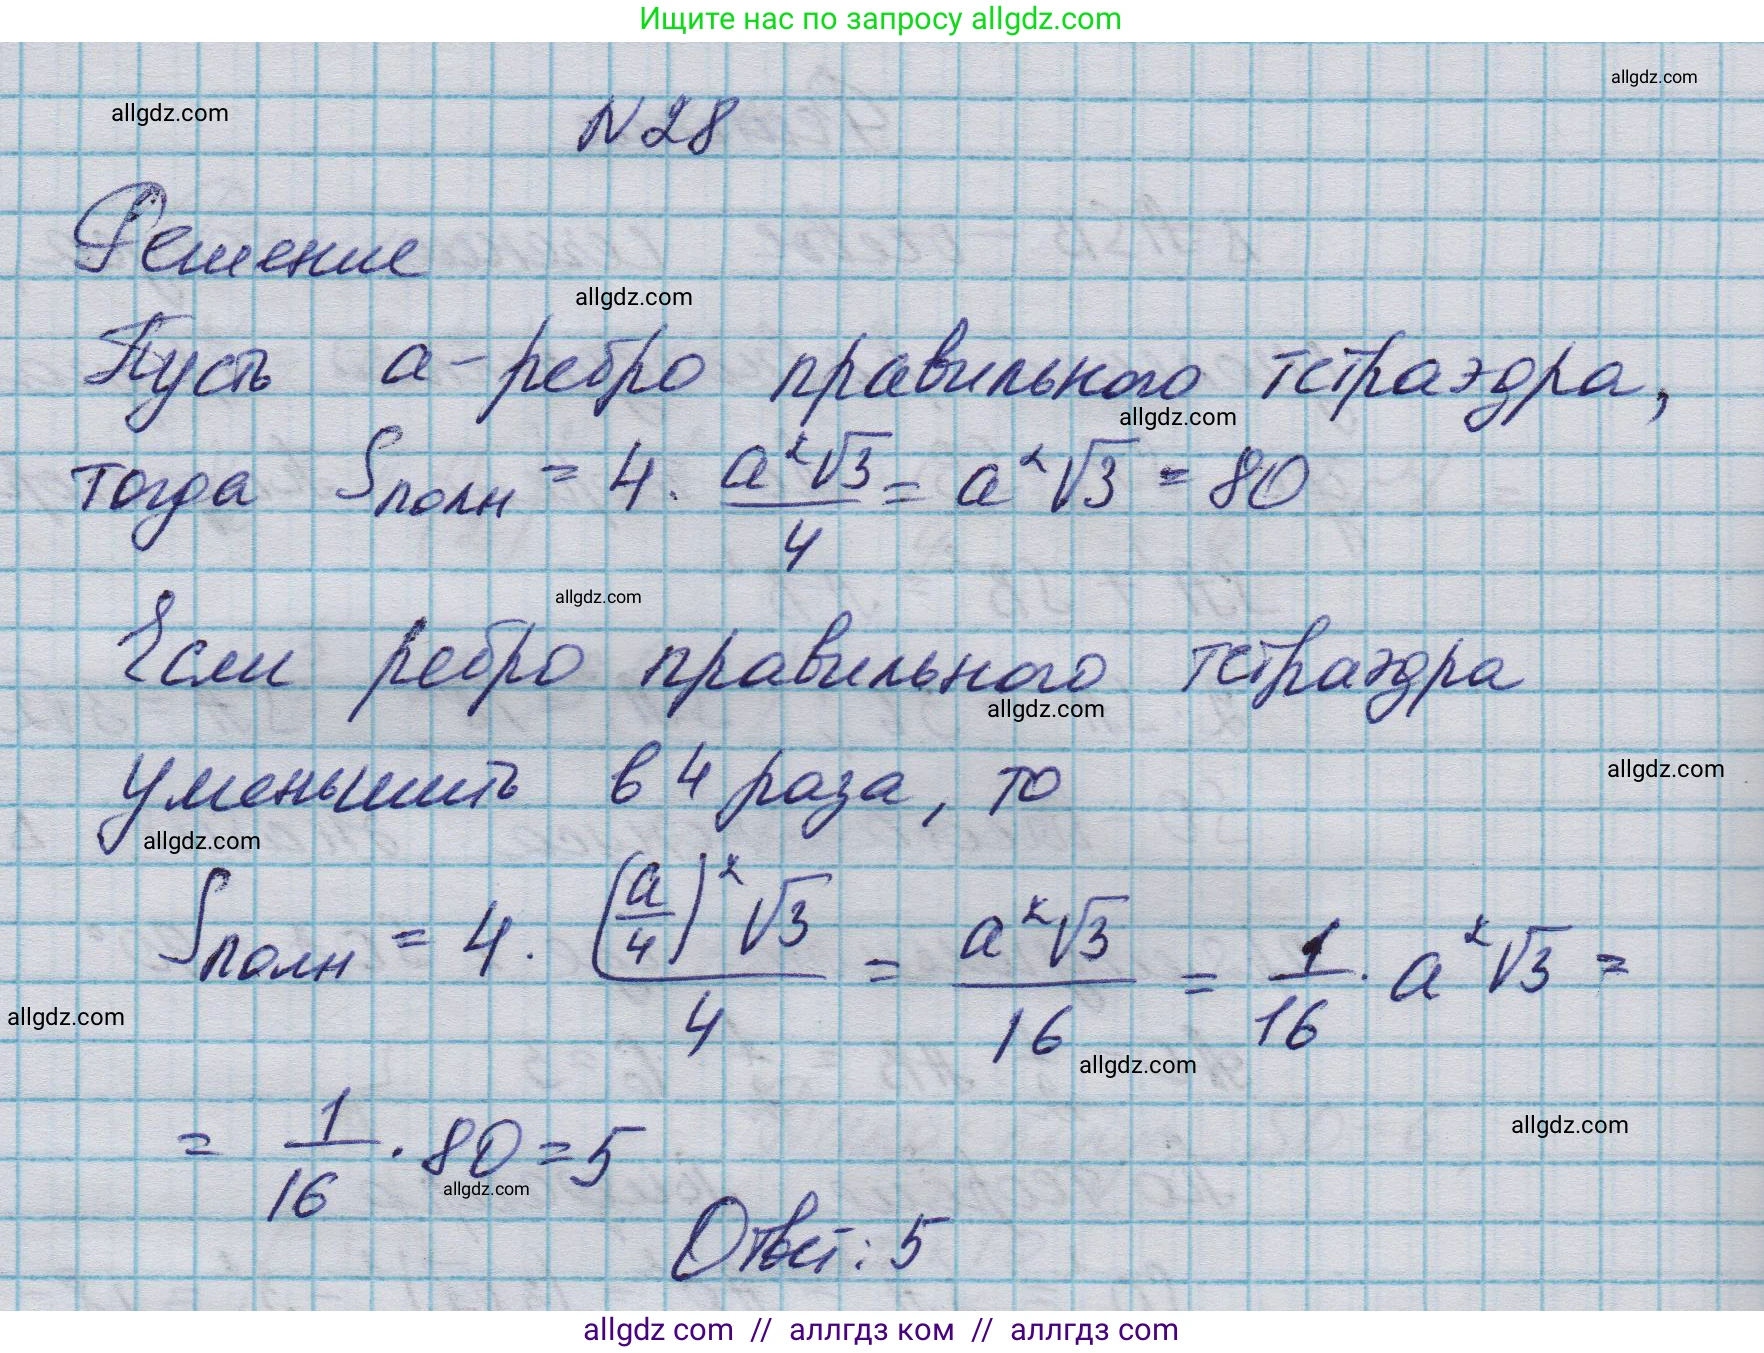 Ищите нас по запросу allgdz.com
allgdz.com
allgdz.com
N 28
Решение
allgdz.com
Пусть a - ребро правильного тетраэдра,
allgdz.com
тогда Sполн = 4 · a²√3/4 = a²√3 = 80
allgdz.com
Если ребро правильного тетраэдра
allgdz.com
уменьшить в 4 раза, то
allgdz.com
allgdz.com
Sполн = 4 · (a/4)²√3/4 = a²√3/16 = 1/16 · a²√3 =
allgdz.com
allgdz.com
= 1/16 · 80 = 5
allgdz.com
allgdz.com
Ответ: 5
allgdz com // аллгдз ком // аллгдз com